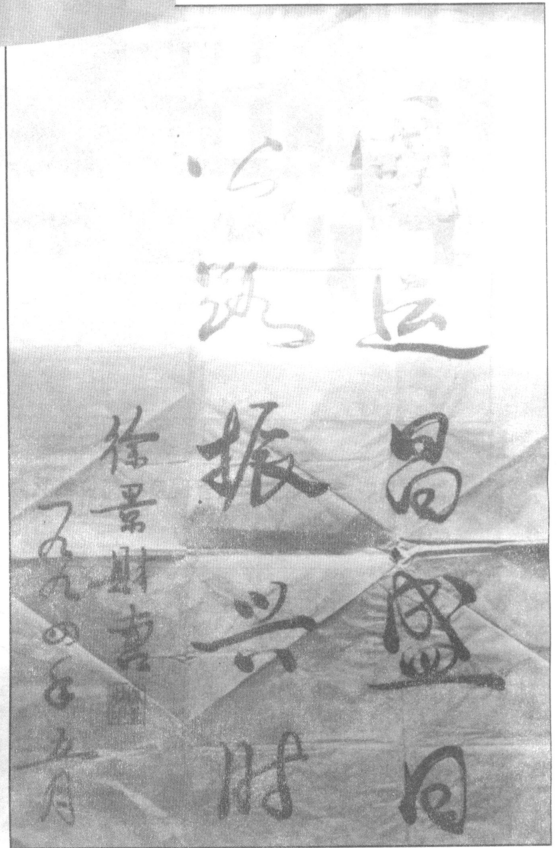 國运昌盛日
公路振兴时
徐景财书
一九九四年五月